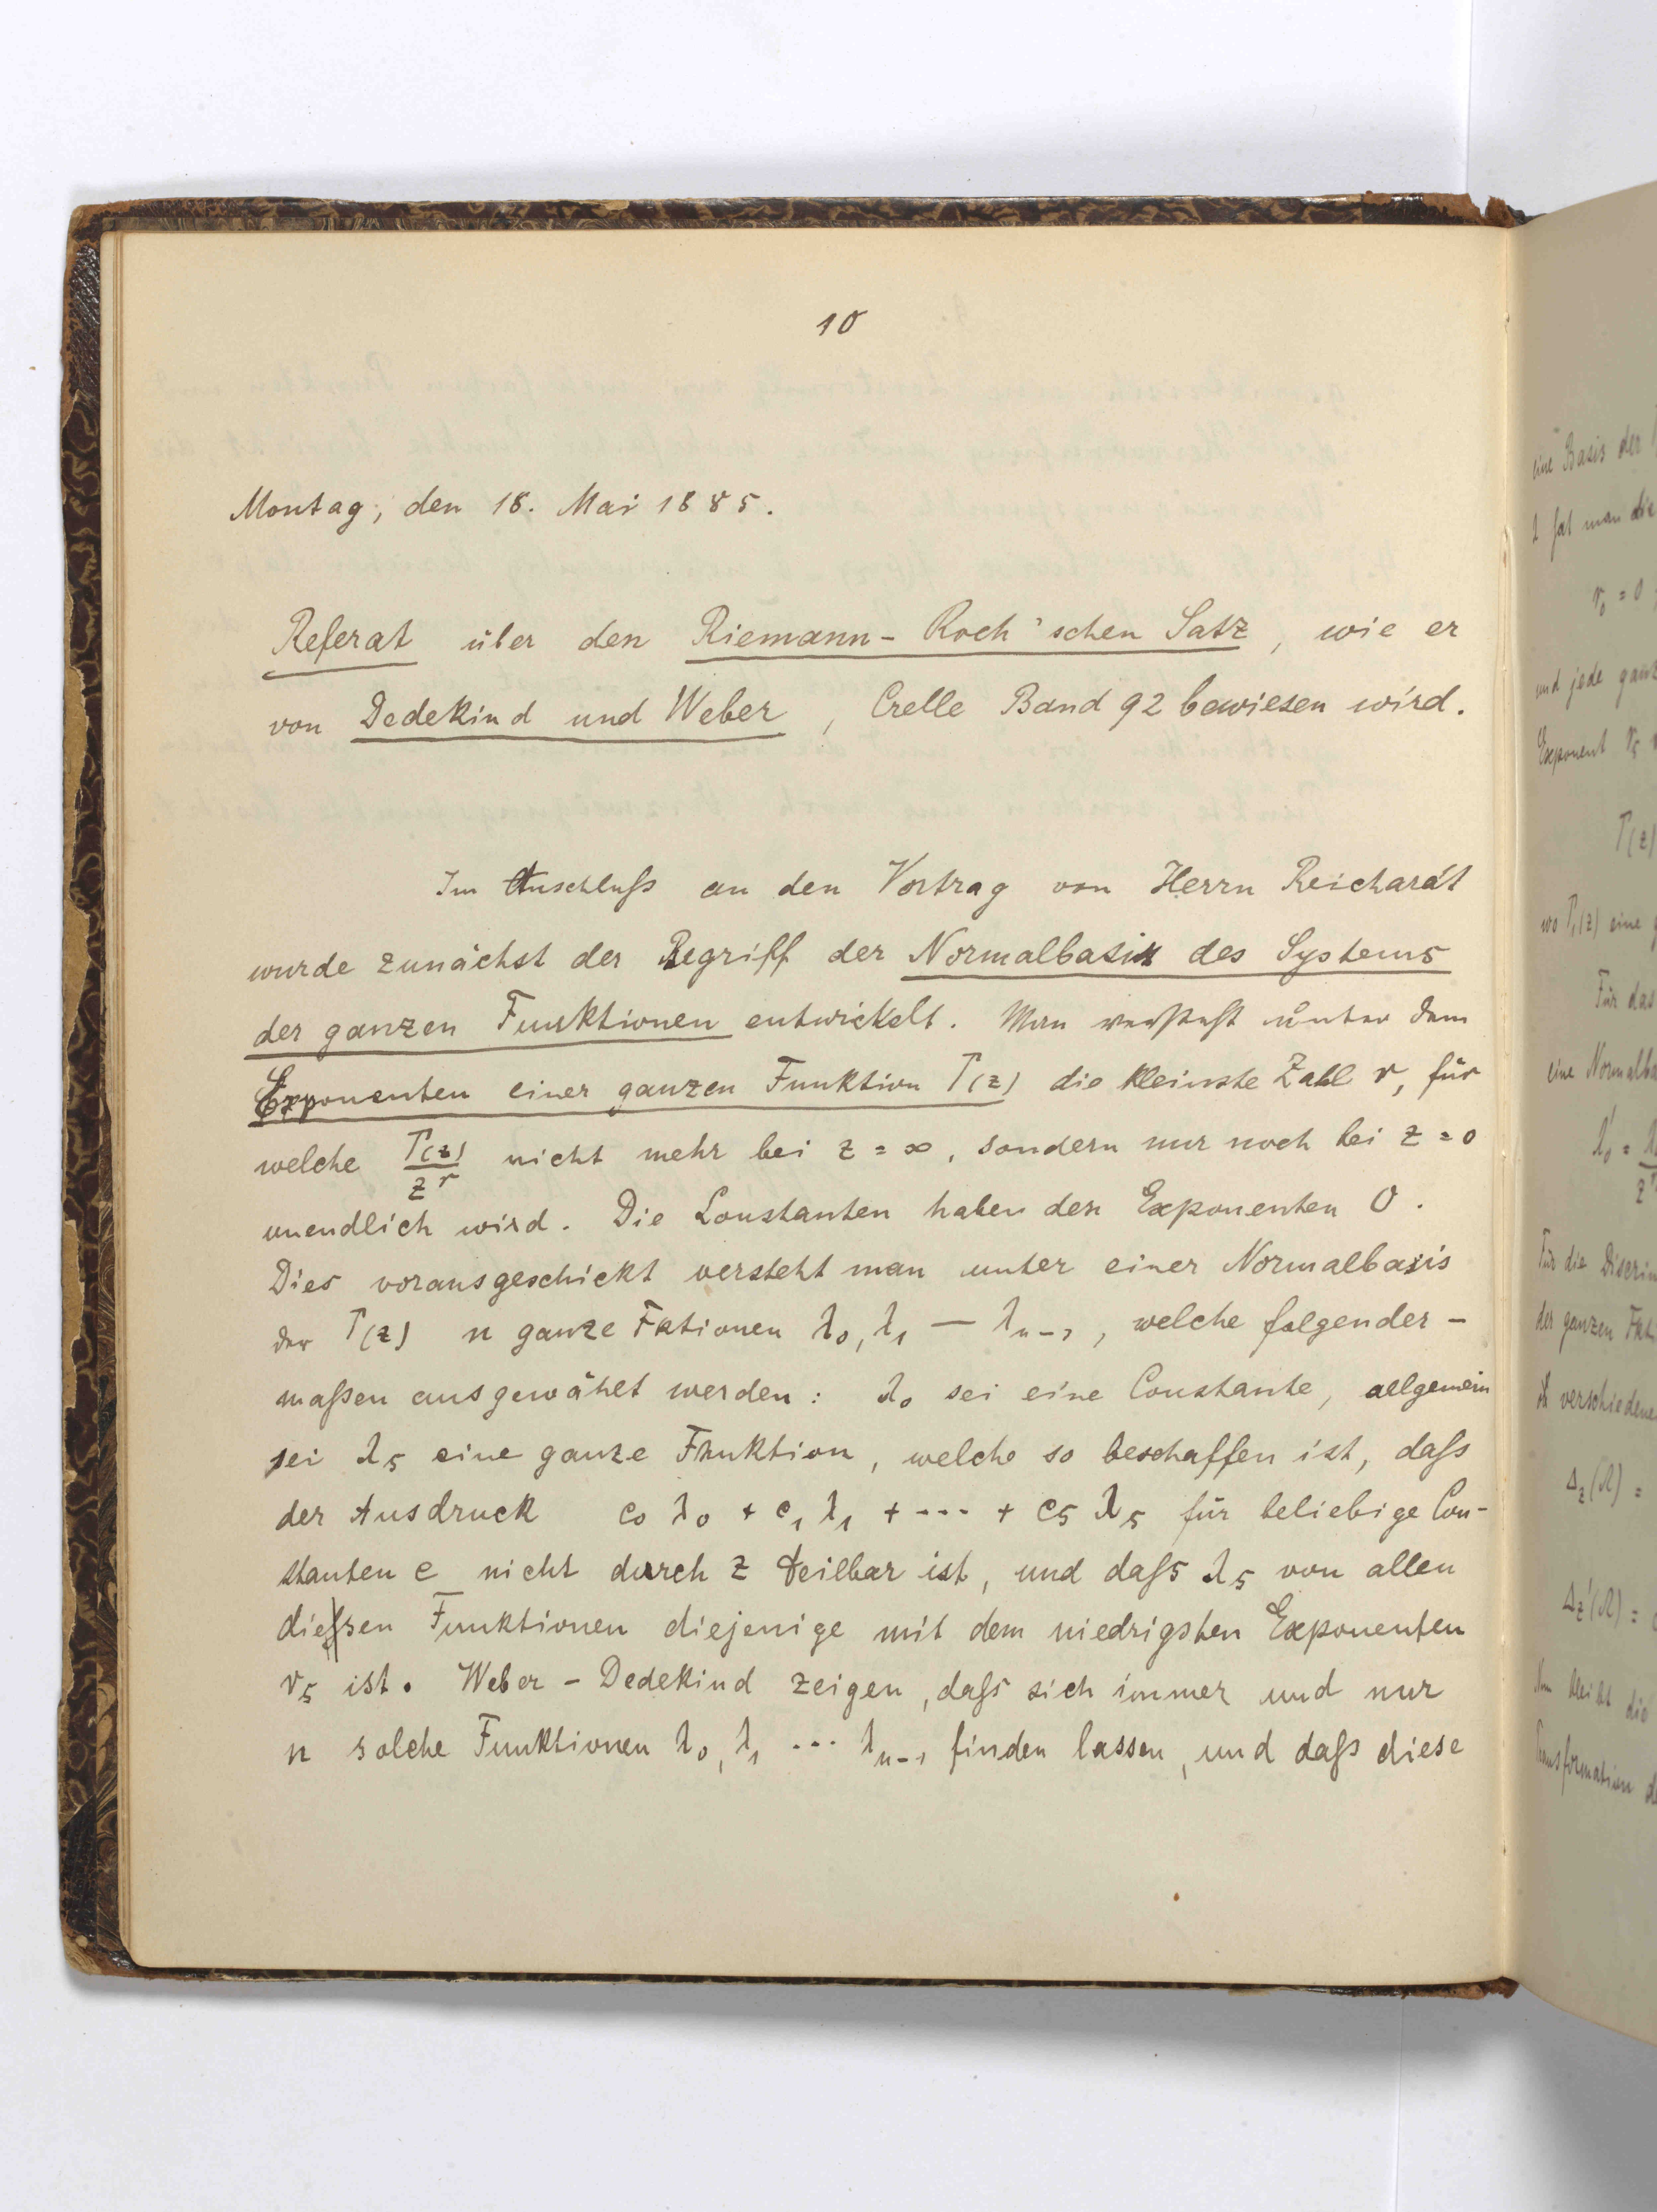 10
Montag, den 18. Mai 1885.
Referat über den Riemann-Roch'schen Satz, wie er
von Dedekind und Weber, Crelle Band 92 bewiesen wird.
Im Anschluß an den Vortrag von Herrn Reichardt
wurde zunächst der Begriff der Normalbasis des Systems
der ganzen Funktionen entwickelt. Man versteht unter dem
Exponenten einer ganzen Funktion Γ(z) die kleinste Zahl r, für
welche Γ(z)/z^r nicht mehr bei z = ∞, sondern nur noch bei z = 0
unendlich wird. Die Constanten haben den Exponenten 0.
Dies vorausgeschickt versteht man unter einer Normalbasis
der Γ(z) n ganze Fktionen λ₀, λ₁ — λₙ₋₁, welche folgender-
maßen ausgewählt werden: λ₀ sei eine Constante, allgemein
sei λₛ eine ganze Funktion, welche so beschaffen ist, daß
der Ausdruck c₀ λ₀ + c₁ λ₁ + ... + cₛ λₛ für beliebige Con-
stanten c nicht durch z teilbar ist, und daß λₛ von allen
diesen Funktionen diejenige mit dem niedrigsten Exponenten
rₛ ist. Weber-Dedekind zeigen, daß sich immer und nur
n solche Funktionen λ₀, λ₁ ... λₙ₋₁ finden lassen, und daß diese
eine Basis der
λ hat man die
r₀ = 0
und jede ganz
Exponent rₛ
Γ(z)
wo Γ₁(z) eine
Für das
eine Normalba
λ'₀ =
Für die Discrim
der ganzen Fkt
verschiedene
Δz(Λ) =
Δz'(Λ) =
die
Transformation d